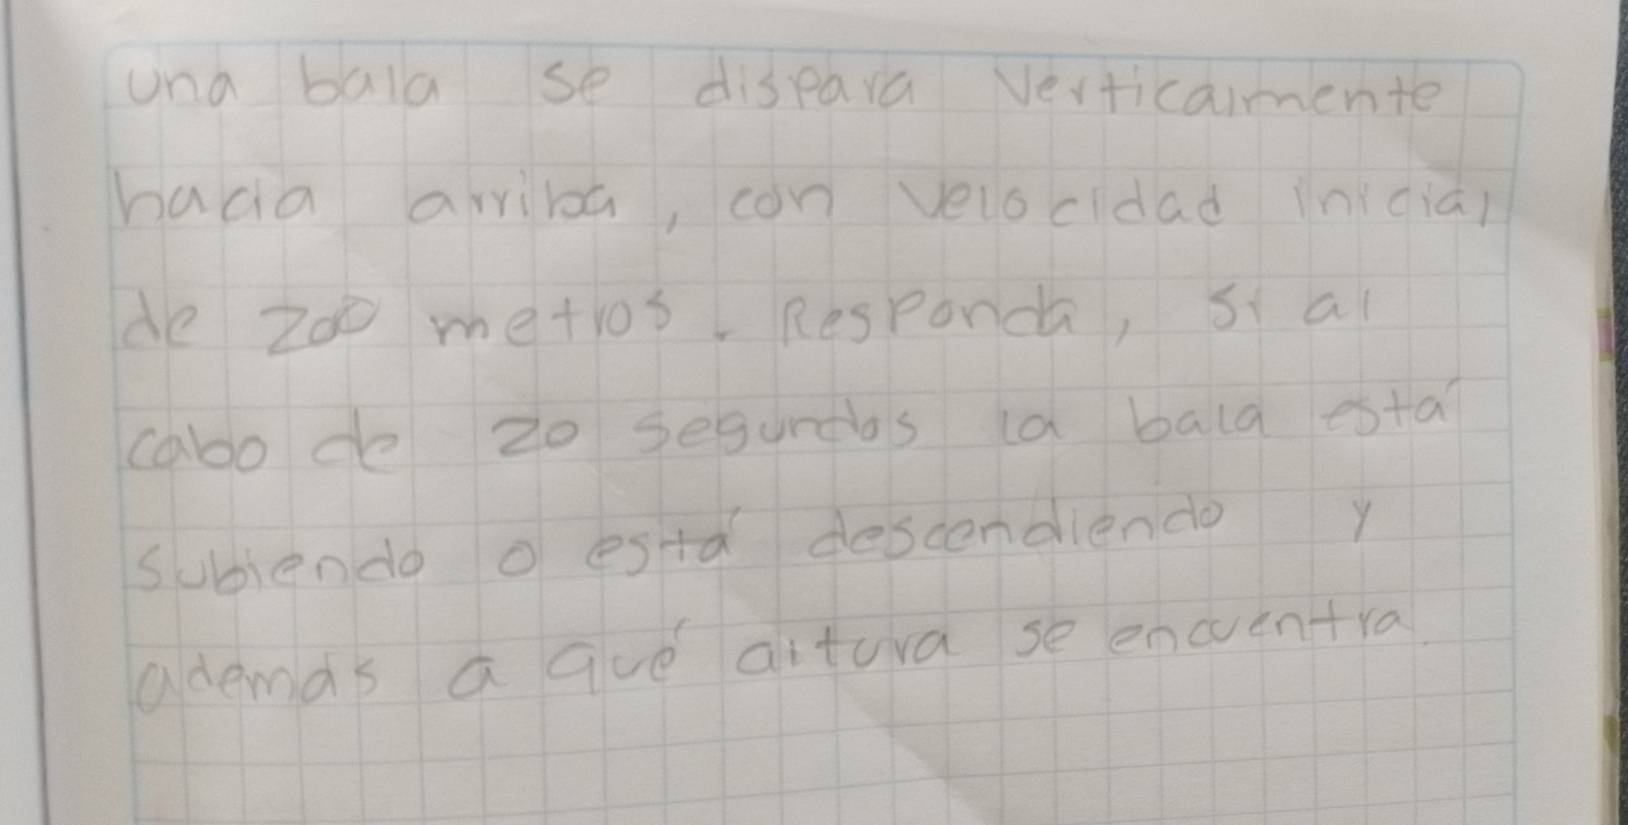 una bala se dispara verticalmente
hacia arriba, con velocidad inicial
de 200 metros. Responda, si al
cabo de 20 segundos la bala está
subiendo o está descendiendo y
además a qué altura se encuentra.